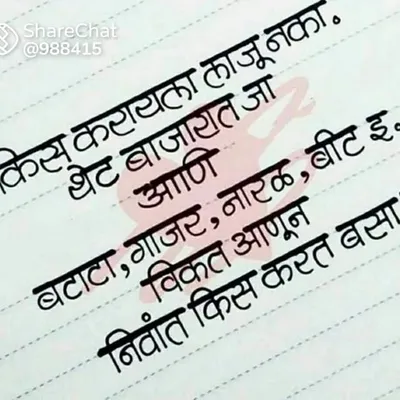 ShareChat
@988415
किस करायला लाजू नका.
थेट बाजारात जा
आणि
बटाटा, गाजर, नारळ, बीट इ.
विकत आणून
निवांत किस करत बसा